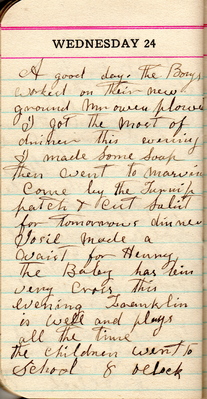 WEDNESDAY 24
A good day. the Boys
worked on their new
ground Mr owen plowed
I got the most of
dinner this evening
I made some soap
then went to marvin
Come by the Turnip
patch & cut salit
for tomorrows dinner
Josie made a
waist for Henry
the Baby has bin
very Cross this
evening Franklin
is well and plays
all the time
the children went to
School 8 oclock